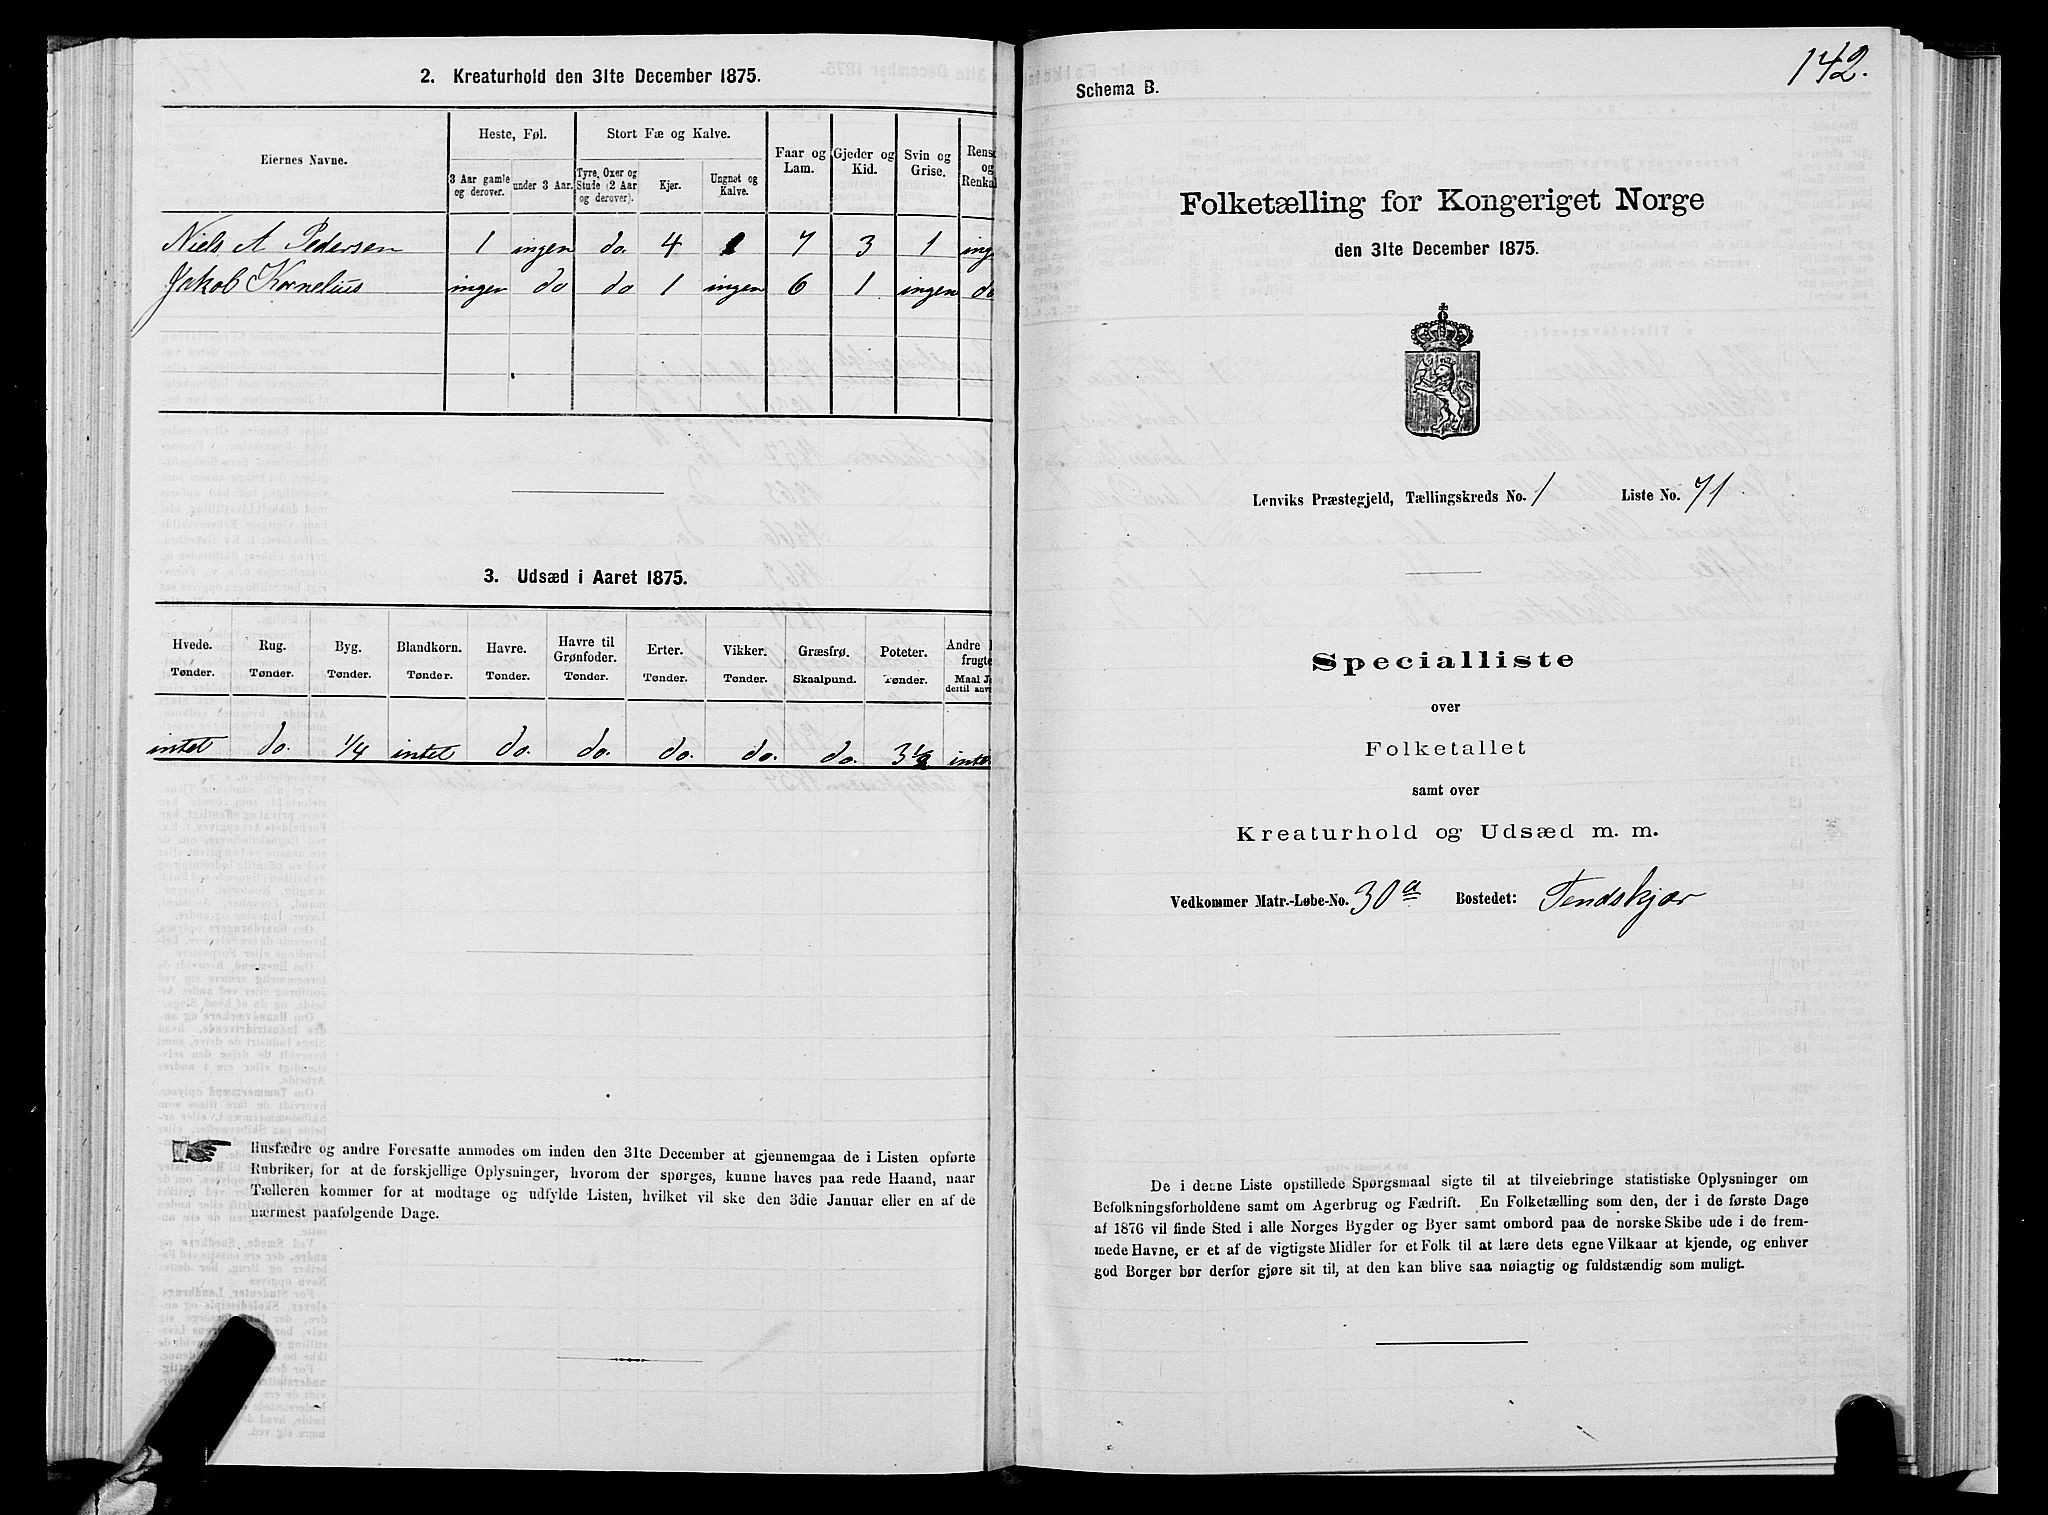 2. Kreaturhold den 31te December 1875.
Eiernes Navne.
Heste, Føl.
Stort Fæ og Kalve.
Faar og Lam.
Gjeder og Kid.
Svin og Grise.
Rensd
og
Renkal
3 Aar gamle og derover.
under 3 Aar.
Tyre, Oxer og Stude (2 Aar og derover).
Kjør.
Ungnøt og Kalve.
Niels A Pedersen 1 ingen do. 4 1 7 3 1 ing
Jakob Kornelius ingen do do 1 ingen 6 1 ingen do
3. Udsæd i Aaret 1875.
Hvede. Rug. Byg. Blandkorn. Havre. Havre til Grønfoder. Erter. Vikker. Græsfrø. Poteter. Andre
frugte
Tønder. Tønder. Tønder. Tønder. Tønder. Tønder. Tønder. Tønder. Skaalpund. Tønder. Maal J
dertil anv
intet do. 1/4 intet do. do. do. do. do. 3 1/2 inte
Husfædre og andre Foresatte anmodes om inden den 31te December at gjennemgaa de i Listen opførte
Rubriker, for at de forskjellige Oplysninger, hvorom der spørges, kunne haves paa rede Haand, naar
Tælleren kommer for at modtage og udfylde Listen, hvilket vil ske den 3die Januar eller en af de
nærmest paafølgende Dage.
142.
Schema B.
Folketælling for Kongeriget Norge
den 31te December 1875.
Lenviks Præstegjeld, Tællingskreds No. 1 Liste No. 71.
Specialliste
over
Folketallet
samt over
Kreaturhold og Udsæd m. m.
Vedkommer Matr.-Løbe-No. 30a Bostedet: Tendskjær
De i denne Liste opstillede Spørgsmaal sigte til at tilveiebringe statistiske Oplysninger om
Befolkningsforholdene samt om Agerbrug og Fædrift. En Folketælling som den, der i de første Dage
af 1876 vil finde Sted i alle Norges Bygder og Byer samt ombord paa de norske Skibe ude i de frem-
mede Havne, er et af de vigtigste Midler for et Folk til at lære dets egne Vilkaar at kjende, og enhver
god Borger bør derfor gjøre sit til, at den kan blive saa nøiagtig og fuldstændig som muligt.